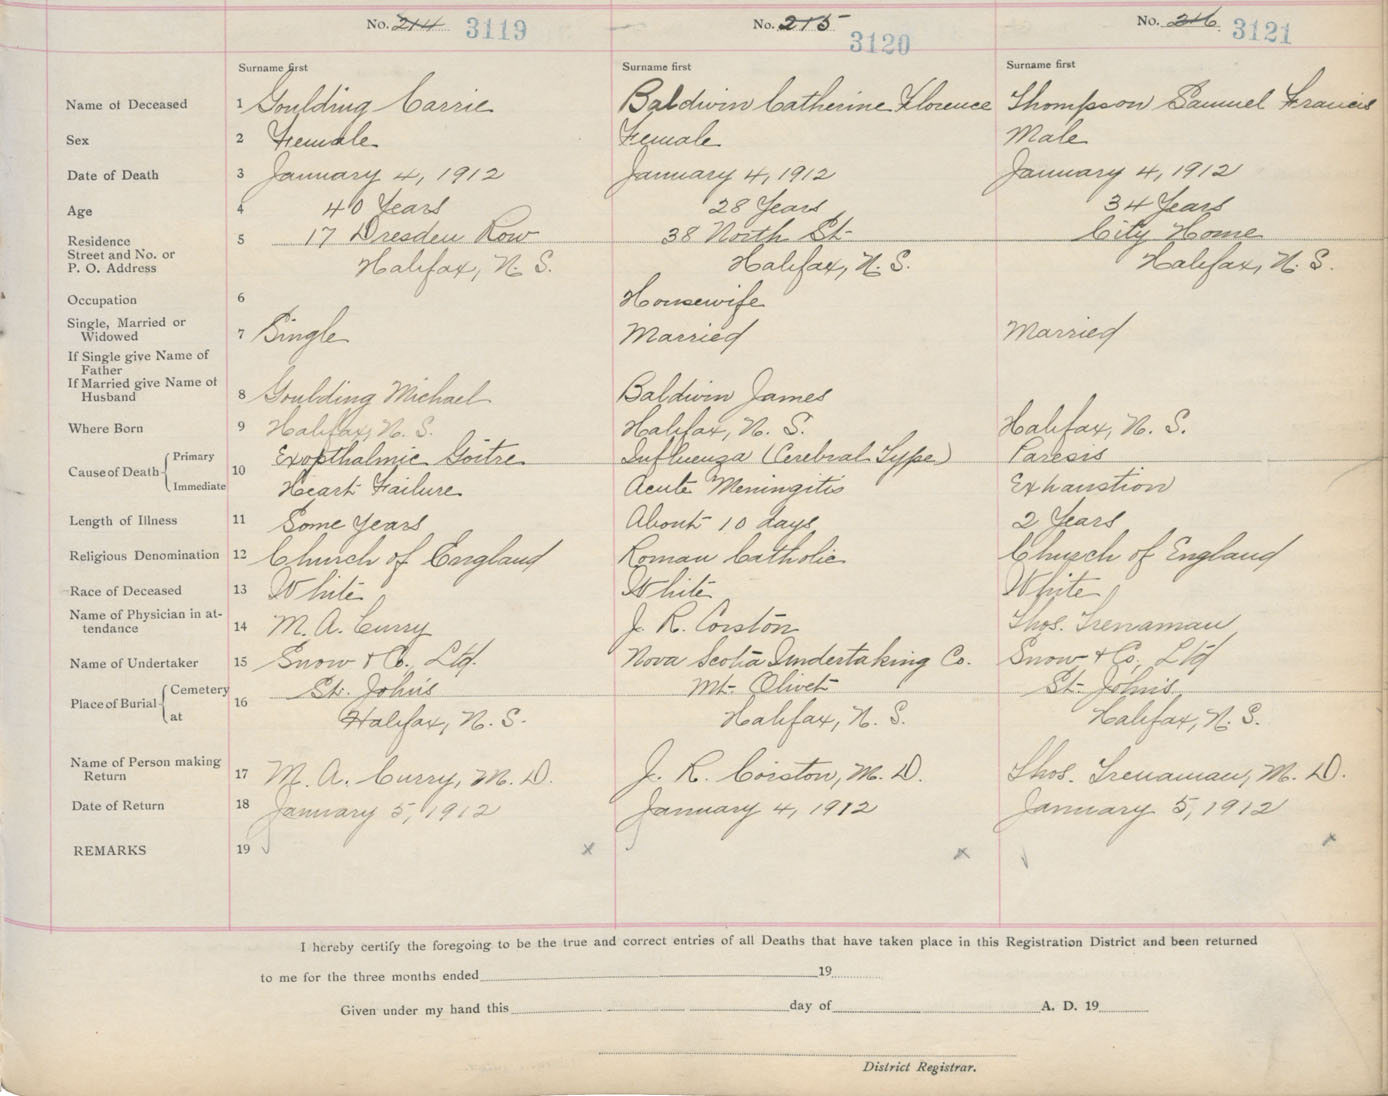 No. 214 3119 No. 215 3120 No. 216 3121
Surname first Surname first Surname first
Name of Deceased 1 Goulding Carrie Baldwin Catherine Florence Thompson Samuel Francis
Sex 2 Female Female Male
Date of Death 3 January 4, 1912 January 4, 1912 January 4, 1912
Age 4 40 Years 28 Years 34 Years
Residence 5 17 Dresden Row 38 North St. City Home
Street and No. or
P. O. Address Halifax, N. S. Halifax, N. S. Halifax, N. S.
Occupation 6 Housewife
Single, Married or
Widowed 7 Single Married Married
If Single give Name of
Father
If Married give Name of
Husband 8 Goulding Michael Baldwin James
Where Born 9 Halifax, N. S. Halifax, N. S. Halifax, N. S.
Cause of Death Primary 10 Exopthalmic Goitre Influenza (Cerebral Type) Paresis
Immediate Heart Failure Acute Meningitis Exhaustion
Length of Illness 11 Some Years About 10 days 2 Years
Religious Denomination 12 Church of England Roman Catholic Church of England
Race of Deceased 13 White White White
Name of Physician in at-
tendance 14 M. A. Curry J. R. Corston Thos. Trenaman
Name of Undertaker 15 Snow & Co. Ltd. Nova Scotia Undertaking Co. Snow & Co. Ltd
Place of Burial Cemetery 16 St. John's Mt. Olivet St. John's
at Halifax, N. S. Halifax, N. S. Halifax, N. S.
Name of Person making
Return 17 M. A. Curry, M. D. J. R. Corston, M. D. Thos. Trenaman, M. D.
Date of Return 18 January 5, 1912 January 4, 1912 January 5, 1912
REMARKS 19 x x x
I hereby certify the foregoing to be the true and correct entries of all Deaths that have taken place in this Registration District and been returned
to me for the three months ended 19
Given under my hand this day of A. D. 19
District Registrar.